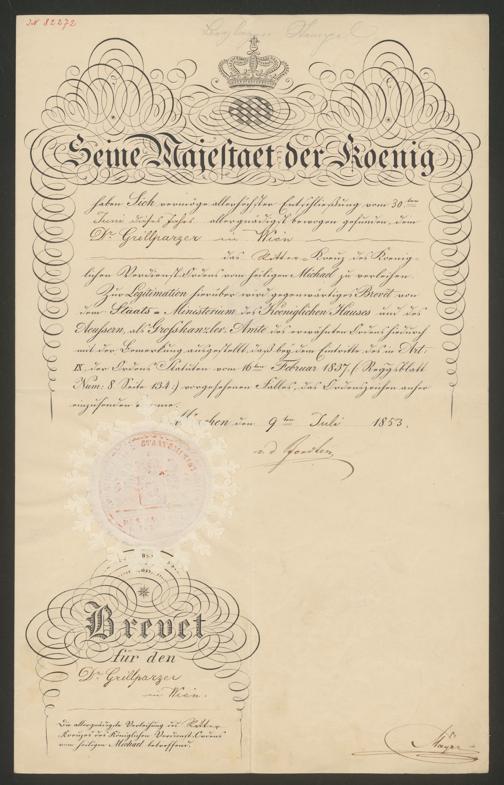 JN 82272
Seine Majestaet der Koenig
haben Sich vermöge allerhöchster Entschließung vom 30ten
Juni dieses Jahres allergnädigst bewogen gefunden, dem
Dr Grillparzer in Wien
das Ritter-Kreuz des Königlichen
Verdienst-Ordens vom heiligen Michael zu verleihen.
Zur Legitimation hierüber wird gegenwärtiges Brevet von
dem Staats-Ministerium des Königlichen Hauses und des
Aeussern, als Grosskanzler-Amte des erwähnten Ordens hiedurch
mit der Bemerkung ausgestellt, daß bey dem Eintritte des in Art:
IX der Ordens Statuten vom 16ten Februar 1837 (Reggsblatt
Num: 8 Seite 134.) vorgesehenen Falles, das Ordenszeichen anher
einzusenden
München den 9ten Juli 1853.
v. d. Pfordten
Brevet
für den
Dr Grillparzer
in Wien.
Die allergnädigste Verleihung des Ritter
Kreuzes des Königlichen Verdienst-Ordens
vom heiligen Michael betreffend.